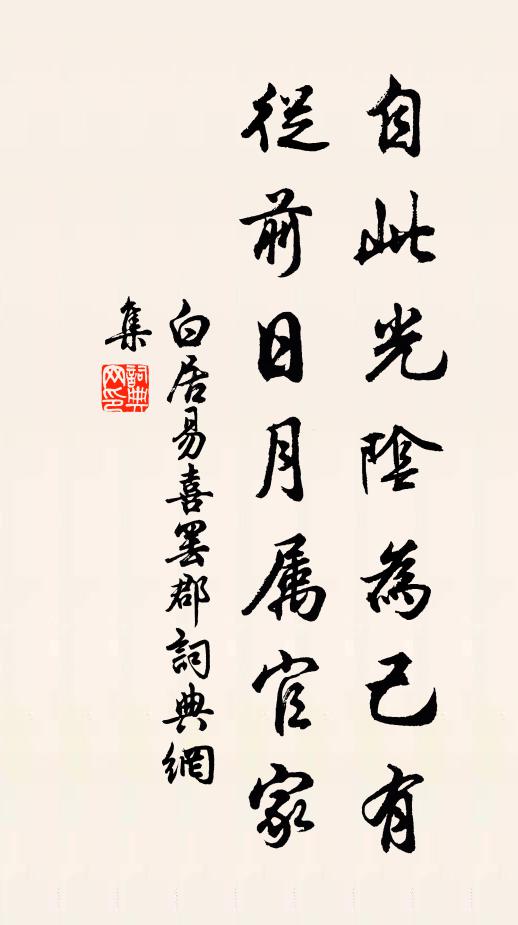 自此光陰為己有
從前日月属官家
白居易喜罢郡詞典網
集
詞典网印